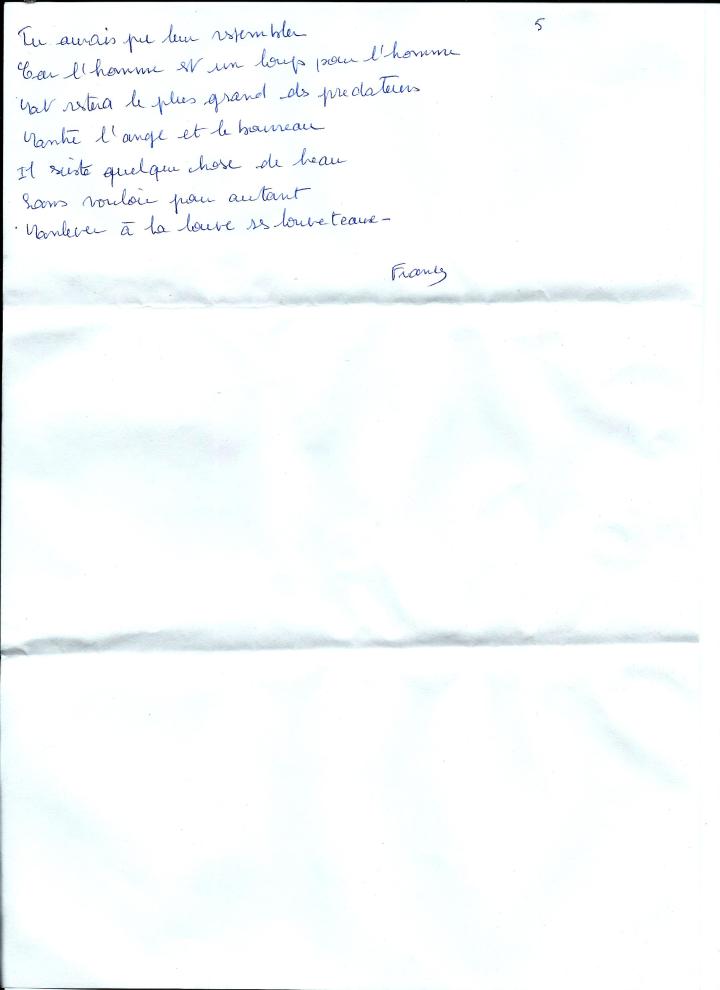 Tu aurais pu leur ressembler 5
Car l'homme est un loup pour l'homme
Et restera le plus grand des predateurs
Entre l'ange et le bourreau
Il existe quelque chose de beau
Sans vouloir pour autant
Enlever à la louve ses louveteaux-